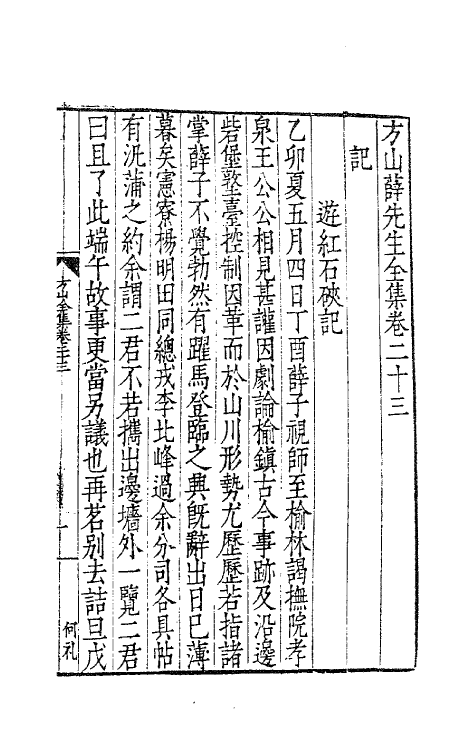 方山薛先生全集卷二十三
記
遊紅石硤記
乙卯夏五月四日丁酉薛子視師至榆林謁撫院孝
泉王公公相見甚讙因劇論榆鎮古今事跡及沿邊
砦堡墪臺控制因革而於山川形勢尤歷歷若指諸
掌薛子不覺勃然有躍馬登臨之興旣辭出日已薄
暮矣憲寮楊明田同總戎李北峰過余分司各具帖
有汎蒲之約余謂二君不若攜出邊墻外一覽二君
曰且了此端午故事更當另議也再茗別去詰旦戊
方山全集卷二十三
一
何礼